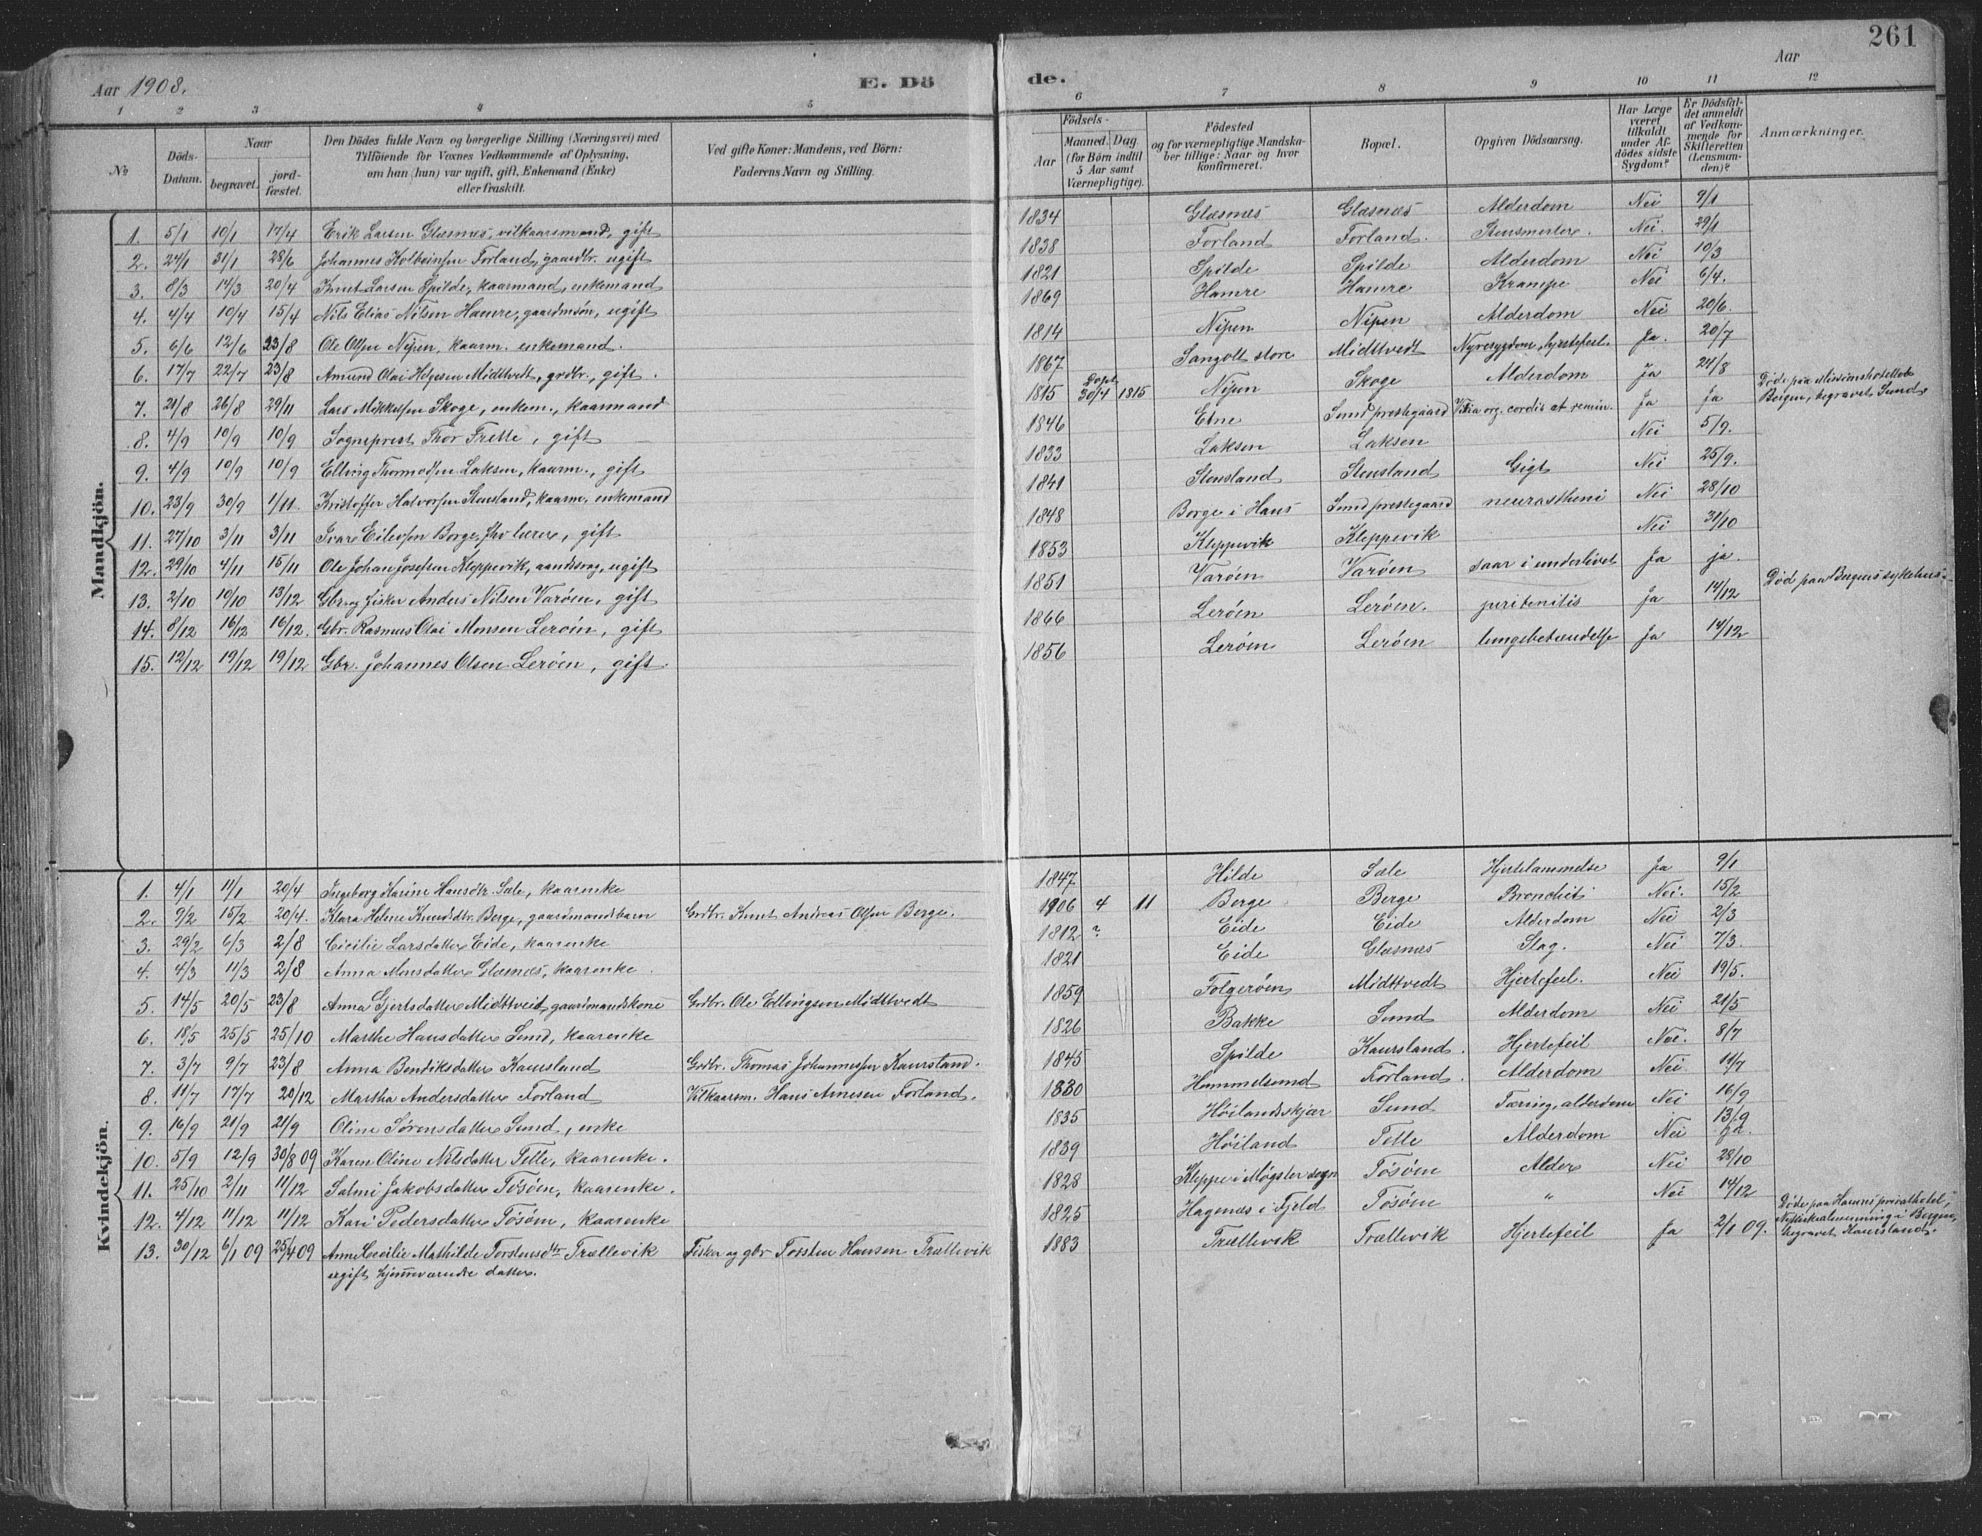 261
Aar 1908.
E. Dö
de.
Aar
1 2 3 4 5 6 7 8 9 10 11 12
No
Döds-Datum.
Naar
begravet.
jordfæstet.
Den Dödes fulde Navn og borgerlige Stilling (Næringsvei) med
Tilföiende for Voxnes Vedkommende af Oplysning,
om han (hun) var ugift, gift, Enkemand (Enke)
eller fraskilt.
Ved gifte Koner: Mandens, ved Börn:
Faderens Navn og Stilling.
Födsels-
Aar
Maaned. Dag
(for Börn indtil
5 Aar samt
Værnepligtige).
Födested
og for værnepligtige Mandska-
ber tillige: Naar og hvor
konfirmeret.
Bopæl.
Opgiven Dödsaarsag.
Har Læge
været
tilkaldt
under Af-
dödes sidste
Sygdom?
Er Dödsfal-
det anmeldt
af Vedkom-
mende for
Skifteretten
(Lensman-
den)?
Anmærkninger.
Mandkjön.
1. 5/1 10/1 17/4 Erik Larsen Glæsnes, vilkaarsmand, gift 1834 Glæsnes Glæsnes Alderdom Nei 9/1
2. 24/1 31/1 28/6 Johannes Kolbeinsen Forland, gaardbr. ugift 1838 Forland Forland. Nei. 29/1
3. 8/3 14/3 20/4 Knut Larsen Spilde, kaarmand, enkemand 1821 Spilde Spilde Alderdom Nei 10/3
4. 4/4 10/4 15/4 Nils Elias Nilsen Hamre, gaardmsön, ugift 1869 Hamre Hamre Krampe Nei 6/4.
5. 6/6 12/6 23/8 Ole Olsen Nipen, kaarm. enkemand. 1814 Nipen Nipen Alderdom Nei 20/6.
6. 17/7 22/7 23/8 Amund Olai Helgesen Midttvedt, grdbr., gift. 1867 Sangolt store Midttvedt Nyresygdom, hjertefeil. Ja. 20/7
7. 21/8 26/8 29/11 Lars Mikkelsen Skoge, enkem., kaarmand 1815 Döpt 30/4 1815 Nipen Skoge Alderdom Ja 24/8
8. 4/9 10/9 10/9 Sogneprest Thor Frette, gift 1846 Etne Sund prestegaard Vitia org. cordis et renum. Ja Ja Döde paa Missionshotellet Bergen, begravet Sund.
9. 4/9 10/9 10/9 Elling Thormodsen Laksen, kaarm., gift 1833 Laksen Laksen Nei 5/9.
10. 23/9 30/9 1/11. Kristoffer Halvorsen Stensland, kaarm. enkemand 1841 Stensland Stensland Gigt Nei 25/9.
11. 27/10 3/11 3/11 Ivar Eilevsen Borge, lærer, gift 1848 Borge i Haus Sund prestegaard neurastheni Nei 28/10
12. 29/10 4/11 15/11 Ole Johan Josefsen Kleppevik, aandssvag, ugift 1853 Kleppevik Kleppevik Nei 31/10
13. 2/10 10/10 13/12 Gbr. og fisker Anders Nilsen Varöen, gift 1851 Varöen Varöen saar i underlivet Ja ja. Död paa Bergens sykehus.
14. 8/12 16/12 16/12. Gbr. Rasmus Olai Monsen Leröen, gift 1866 Leröen Leröen. peritonitis Ja 14/12
15. 12/12 19/12 19/12 Gbr. Johannes Olsen Leröen, gift. 1856 Leröen Leröen lungebetændelse Ja 14/12
Kvindekjön.
1. 4/1 11/1 20/4 Ingeborg Karine Hansdtr. Sæle, kaarenke 1847 Hilde Sæle Hjertelammelse Ja 9/1
2. 9/2 15/2. 20/4. Klara Helene Knutsdtr. Berge, gaardmandsbarn Grdbr. Knut Andreas Olsen Berge. 1906 4 11 Berge Berge Bronchiti Nei. 15/2
3. 29/2 6/3 2/8 Cicilie Larsdatter Eide, kaarenke 1812 ? Eide Eide Alderdom Nei 2/3
4. 4/3 11/3 2/8 Anna Monsdatter Glæsnes, kaarenke. 1821 Eide Glæsnes Slag. Nei 7/3.
5. 14/5 20/5 23/8 Anna Gjertsdatter Midttveit, gaardmandskone Grdbr. Ole Ellingsen Midttvedt 1859 Folgeröen Midttvedt Hjertefeil. Nei 19/5.
6. 18/5 25/5 25/10 Marthe Hansdatter Sund, kaarenke 1826 Bakke Sund Alderdom Nei 21/5
7. 3/7 9/7 23/8 Anna Bendiksdatter Kausland Grdbr. Thomas Johannessen Kausland. 1845 Spilde Kausland. Hjertefeil Nei. 8/7
8. 11/7 17/7 20/12 Martha Andersdatter Forland Vilkaarsm. Hans Arnesen Forland. 1830 Hummelsund Forland. Alderdom Nei 14/7
9. 16/9 21/9 21/9 Oline Sörensdatter Sund, enke 1835 Höilandsskjær Sund Tæring, alderdom Nei 16/9
10. 5/9 12/9 30/8 09 Karen Oline Nilsdatter Telle, kaarenke. 1839 Höiland Telle Alderdom Nei 13/9
11. 25/10 2/11 11/12 Salmi Jakobsdatter Tösöen, kaarenke. 1828 Kleppe i Møgster sogn Tösöen Alder Nei 28/10
12. 4/12 11/12 11/12 Kari Pedersdatter Tösöen, kaarenke 1825 Hagenæs i Fjeld Tösöen " Nei 14/12
13. 30/12 6/1 09 25/4 09 Anne Cecilie Mathilde Torstensdtr Trællevik Fisker og gbr Torsten Hansen Trællevik 1883 Trællevik Trællevik Hjertefeil Ja 2/1 09. Döde paa privathotel, i Bergen, begravet Kausland.
ugift hjemmeværende datter.